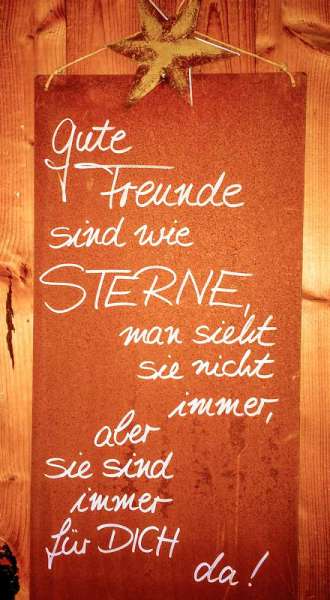 gute
Freunde
sind wie
STERNE,
man sieht
sie nicht
immer,
aber
sie sind
immer
für DICH
da!